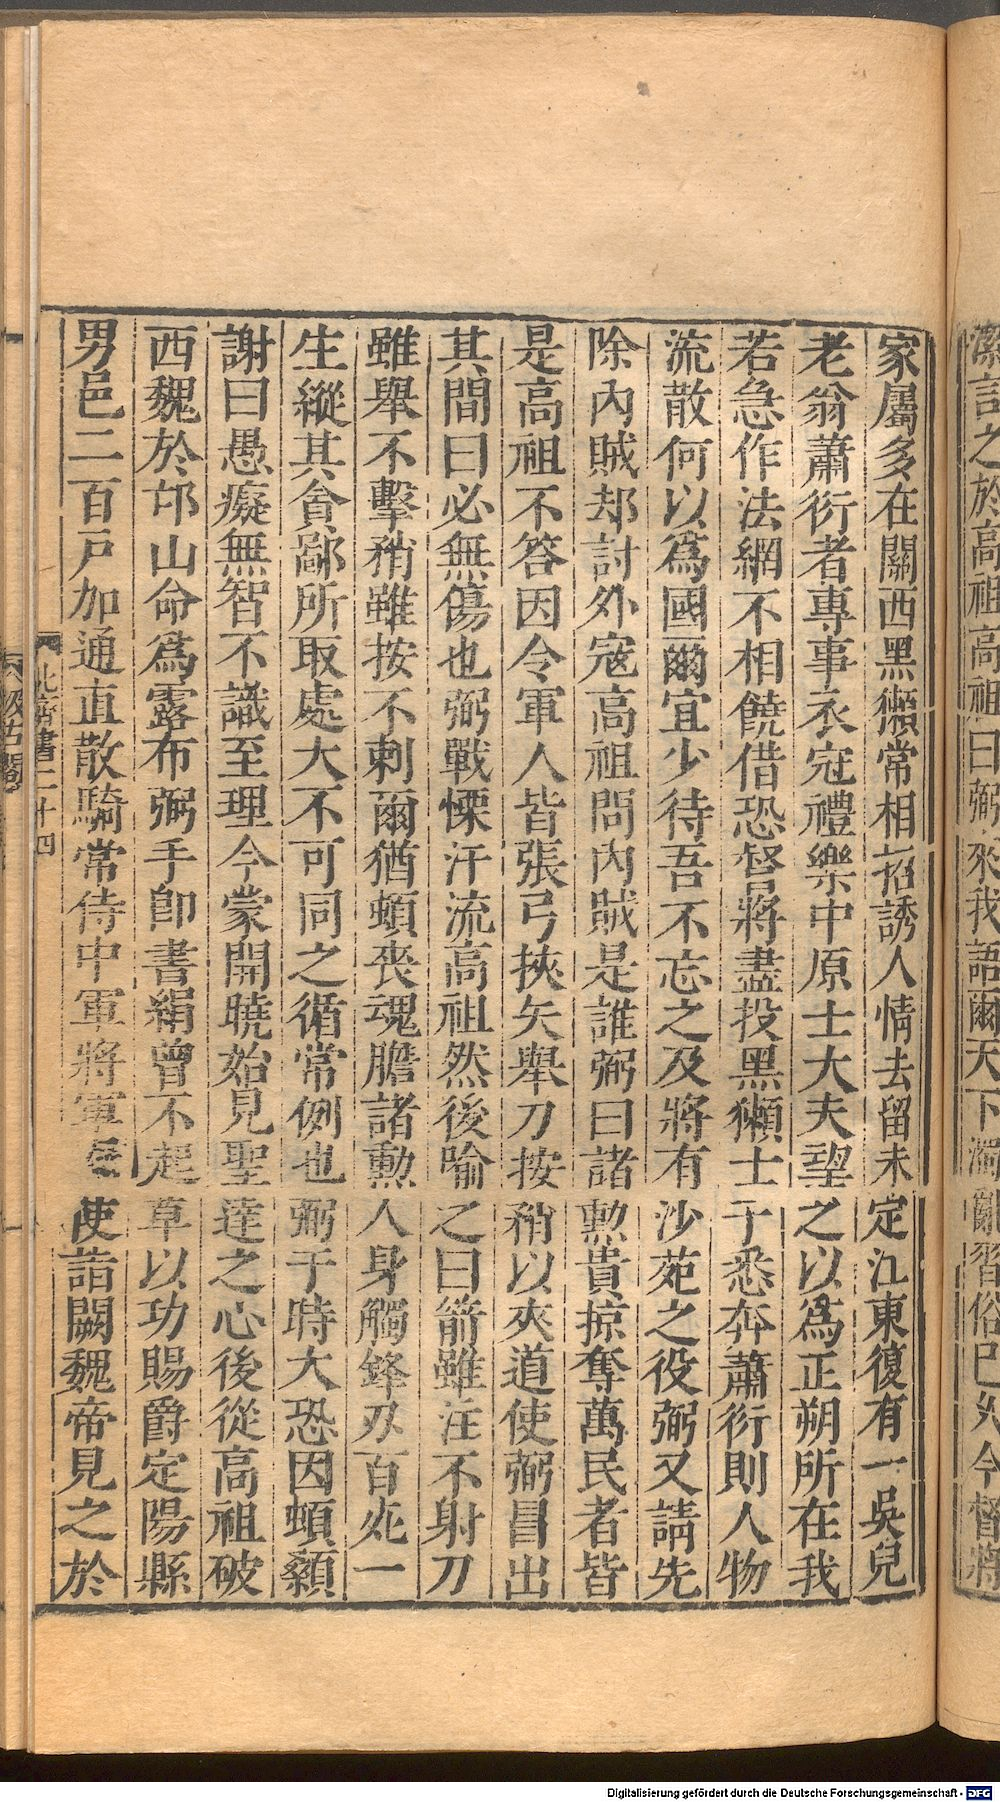 家屬多在關西黑獺常相招誘人情去留未定江東復有一吳兒
老翁蕭衍者專事衣冠禮樂中原士大夫望之以爲正朔所在我
若急作法網不相饒借恐督將盡投黑獺士子悉奔蕭衍則人物
流散何以爲國爾宜少待吾不忘之及將有沙苑之役弼又請先
除內賊却討外寇高祖問內賊是誰弼曰諸勲貴掠奪萬民者皆
是高祖不答因令軍人皆張弓挾矢舉刀按矟以夾道使弼冒出
其間曰必無傷也弼戰慄汗流高祖然後喻之曰箭雖注不射刀
雖舉不擊矟雖按不刺爾猶頓喪魂膽諸勲人身觸鋒刃百死一
生縱其貪鄙所取處大不可同之循常例也弼于時大恐因頓顙
謝曰愚癡無智不識至理今蒙開曉始見聖達之心後從高祖破
西魏於邙山命爲露布弼手卽書絹曾不起草以功賜爵定陽縣
男邑二百戸加通直散騎常侍中軍將軍 使詣闕魏帝見之於
北齊書二十四
汲古閣
潔言之於高祖高祖曰弼來我語爾天下濁亂習俗已久今督將
Digitalisierung gefördert durch die Deutsche Forschungsgemeinschaft - DFG